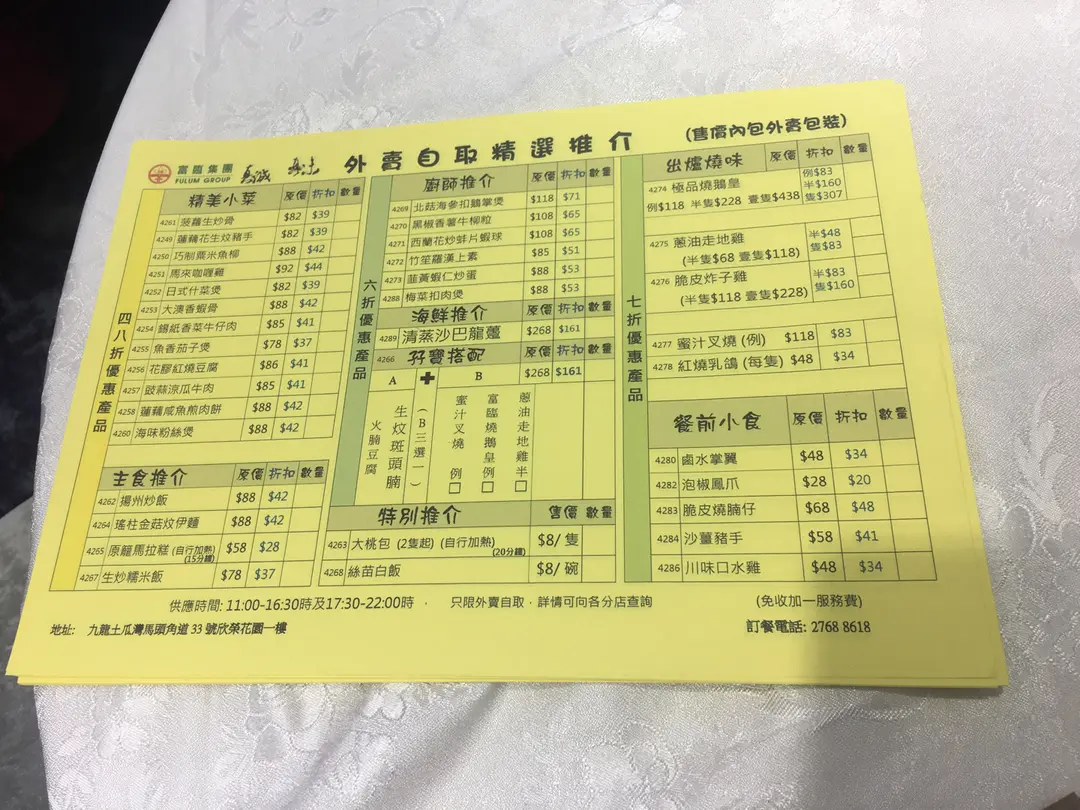 富臨集團
FULUM GROUP
外賣自取精選推介
(售價內包外賣包裝)
四八折優惠產品
精美小菜 原價 折扣 數量
4261 菠蘿生炒骨 $82 $39
4249 蓮藕花生炆豬手 $82 $39
4250 巧制粟米魚柳 $88 $42
4251 馬來咖喱雞 $92 $44
4252 日式什菜煲 $82 $39
4253 大澳香蝦骨 $88 $42
4254 錫紙香菜牛仔肉 $85 $41
4255 魚香茄子煲 $78 $37
4256 花膠紅燒豆腐 $86 $41
4257 豉蒜涼瓜牛肉 $85 $41
4258 蓮藕咸魚煎肉餅 $88 $42
4260 海味粉絲煲 $88 $42
主食推介 原價 折扣 數量
4262 揚州炒飯 $88 $42
4264 瑤柱金菇炆伊麵 $88 $42
4265 原籠馬拉糕 (自行加熱) $58 $28
(15分鐘)
4267 生炒糯米飯 $78 $37
六折優惠產品
廚師推介 原價 折扣 數量
4269 北菇海參扣鵝掌煲 $118 $71
4270 黑椒香薯牛柳粒 $108 $65
4271 西蘭花炒蚌片蝦球 $108 $65
4272 竹笙羅漢上素 $85 $51
4273 韮黃蝦仁炒蛋 $88 $53
4288 梅菜扣肉煲 $88 $53
海鮮推介 原價 折扣 數量
4289 清蒸沙巴龍躉 $268 $161
4266 孖寶搭配 原價 折扣 數量
A ✚ B $268 $161
火腩豆腐
生炆斑頭腩
(B三選一)
蜜汁叉燒 例□
富臨燒鵝皇例□
蔥油走地雞半□
特別推介 售價 數量
4263 大桃包 (2隻起) (自行加熱) $8/ 隻
(20分鐘)
4268 絲苗白飯 $8/ 碗
七折優惠產品
出爐燒味 原價 折扣 數量
4274 極品燒鵝皇 例$83
例$118 半隻$228 壹隻$438 半$160
隻$307
4275 蔥油走地雞 半$48
(半隻$68 壹隻$118) 隻$83
4276 脆皮炸子雞 半$83
(半隻$118 壹隻$228) 隻$160
4277 蜜汁叉燒 (例) $118 $83
4278 紅燒乳鴿 (每隻) $48 $34
餐前小食 原價 折扣 數量
4280 鹵水掌翼 $48 $34
4282 泡椒鳳爪 $28 $20
4283 脆皮燒腩仔 $68 $48
4284 沙薑豬手 $58 $41
4286 川味口水雞 $48 $34
供應時間: 11:00-16:30時及17:30-22:00時 . 只限外賣自取﹐詳情可向各分店查詢 (免收加一服務費)
地址: 九龍土瓜灣馬頭角道 33 號欣榮花園一樓 訂餐電話: 2768 8618